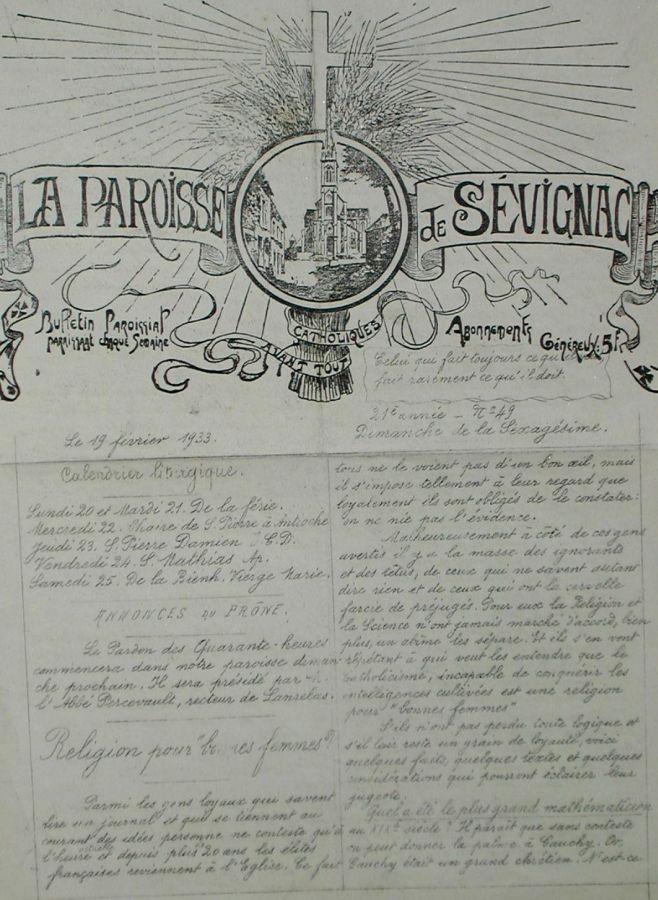 LA PAROISSE
de SÉVIGNAC
Bulletin Paroissial
paraissant chaque Semaine
CATHOLIQUES
AVANT TOUT
Abonnements
Généreux: 5 Fr
Celui qui fait toujours ce qu'il
fait rarement ce qu'il doit.
21e année - No 49
Le 19 février 1933.
Dimanche de la Sexagésime.
Calendrier liturgique.
Lundi 20 et Mardi 21. De la férie.
Mercredi 22. Chaire de S. Pierre à Antioche
Jeudi 23. S. Pierre Damien E. D.
Vendredi 24. S. Mathias Ap.
Samedi 25. De la Bienh. Vierge Marie.
ANNONCES du PRÔNE.
Le Pardon des Quarante-heures
commencera dans notre paroisse diman
che prochain. Il sera présidé par
l'Abbé Percevault, recteur de Lanrelas.
Religion pour "bonnes femmes"
Parmi les gens loyaux qui savent
lire un journal et qui se tiennent au
courant des idées personne ne conteste qu'à
l'heure actuelle et depuis plus 20 ans les élites
françaises reviennent à l'Eglise. Ce fait
tous ne le voient pas d'un bon œil, mais
il s'impose tellement à leur regard que
loyalement ils sont obligés de le constater:
on ne nie pas l'évidence.
Malheureusement à côté de ces gens
avertis il y a la masse des ignorants
et des têtus, de ceux qui ne savent
dire rien et de ceux qui ont la cervelle
farcie de préjugés. Pour eux la Religion et
la Science n'ont jamais marché d'accord, bien
plus, un abîme les sépare. Et ils s'en vont
répétant à qui veut les entendre que le
Catholicisme, incapable de conquérir les
intelligences cultivées est une religion
pour "bonnes femmes"
S'ils n'ont pas perdu toute logique et
s'il leur reste un grain de loyauté, voici
quelques faits, quelques textes et quelques
considérations qui pourront éclairer leur
jugeote.
Quel a été le plus grand mathématicien
au XIXe siècle? Il paraît que sans conteste
on peut donner la palme à Cauchy. Or
Cauchy était un grand chrétien. N'est-ce